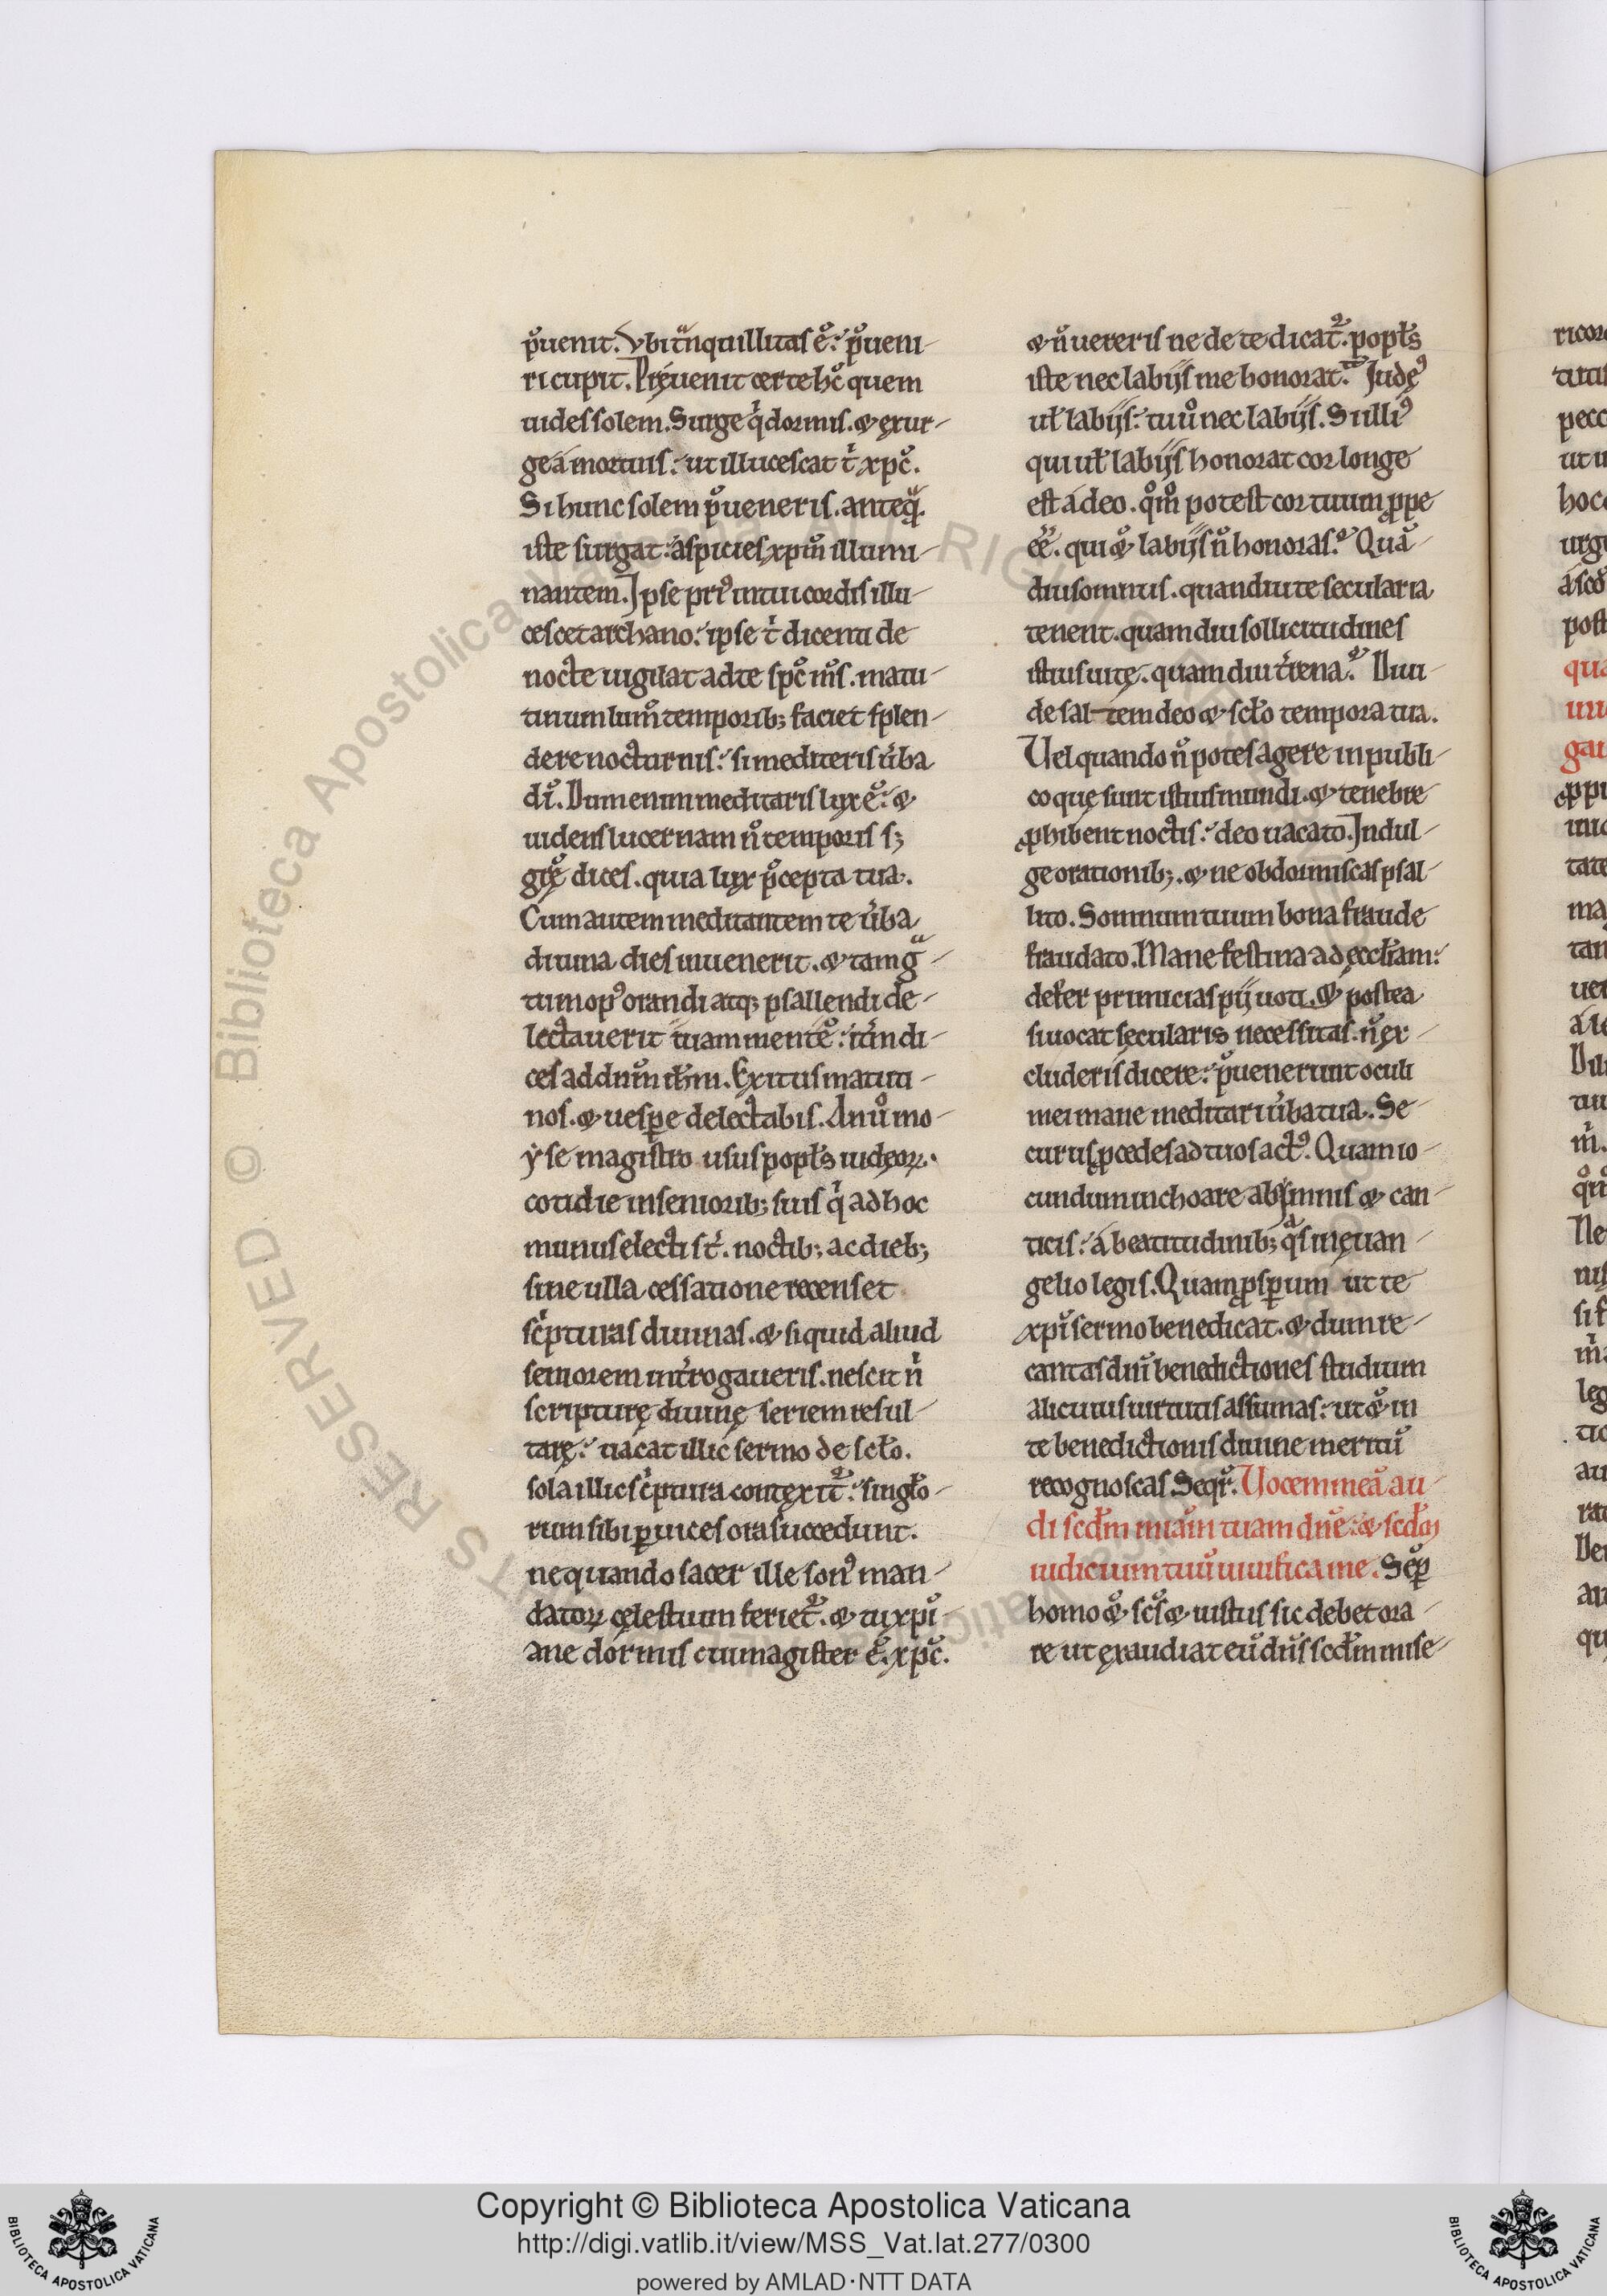 p̄uenit. Vbi tͣnquillitas ē: p̄ueni-
ri cupit. Pręuenit certe hc̄ quem
uides solem. Surge q̇ dormis. & exur-
ge a mortuis: ut illucescat t̄ xpc̄.
Si hunc solem p̄ueneris. anteqͣ.
iste surgat: aspicies xpm̄ illumi-
nantem. Ipse pri᷒ in tui cordis illu-
cescet archano: ipse t̄ dicenti de
nocte uigilat ad te spc̄ ms̄. matu-
tinum lum̄ temporib; faciet splen-
dere nocturnis: si mediteris ūba
dī. Dum enim meditaris lux ē: &
uidens lucernam n̄ temporis s;
grę̄ dices. quia lux p̄cepta tua.
Cum autem meditantem te ūba
diuina dies inuenerit. & tam gͣ-
tum op᷒ orandi atq; psallendi de-
lectauerit tuam mentē: itm̄ di-
ces ad dnm̄ ihm̄. Exitus matuti-
nos. & uespe delectabis. An ū mo-
yse magistro usus popls̄ iudęoꝝ.
cotidie in seniorib; suis q̇ ad hoc
munus electi st̄. noctib; ac dieb;
sine ulla cessatione recenset
sc̄pturas diuinas. & si quid aliud
seniorem int̄rogaueris. nescit n̄
scripturę diuinę seriem resul-
tarę: uacat illic sermo de sclo̅.
sola illic sc̄ptura contexit᷒: singlo̅-
rum sibi p uices ora succedunt.
ne quando sacer ille son᷒ man-
datoꝝ cęlestium feriet᷒. & tu xpi̅-
ane dormis cui magister ē. xpc̄.
& n̄ uereris ne de te dicat᷒. popls̄
iste nec labijs me honorat. Iudę᷒
ul̄ labijs: tu ū nec labijs. Si illi᷒
qui ul̄ labijs honorat cor longe
est a deo. qm̄ potest cor tuum ꝓpe
eē. qui & labijs n̄ honoras. Quā-
diu somnus. quandiu te secularia
tenent. quam diu sollicitudines
istius uitę. quam diu t̄rena. Diui-
de sal-tem deo & sclo̅ tempora tua.
Uel quando n̄ potes agere in publi-
co quę sunt istius mundi. & tenebre
ꝓhibent noctis: deo uacato. Indul-
ge orationib;. & ne obdormiscas psal-
lito. Somnum tuum bona fraude
fraudato. Mane festina ad eccl̄am:
defer primicias pij uoti. & postea
si uocat secularis necessitas. n̄ ex-
cluderis dicere: p̄uenerunt oculi
mei mane meditari ūba tua. Se-
curus ꝓcedes ad tuos act᷒. Quam io-
cundum inchoare ab ymnis & can-
ticis: a beatitudinib; qͣs in ęuan-
gelio legis. Quam ꝓspum ut te
xpi̅ sermo benedicat. & dum re-
cantas dnī benedictiones studium
alicuius uirtutis assumas: ut & in
te benedictionis diuine meritū
recognoscas Seqr̄. Uocem meā au-
di scdm̄ miāin tuam dnē: & scdm̄
iudicium tuū uiuifica me. Sēp
homo & scs̄ & iustus sic debet ora-
re ut exaudiat eū dns̄ scdm̄ mise-
Copyright © Biblioteca Apostolica Vaticana
http://digi.vatlib.it/view/MSS_Vat.lat.277/0300
powered by AMLAD·NTT DATA